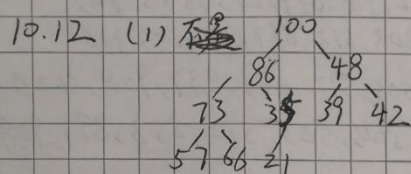 10.12 (1) 100
86 48
73 35 39 42
57 66 21